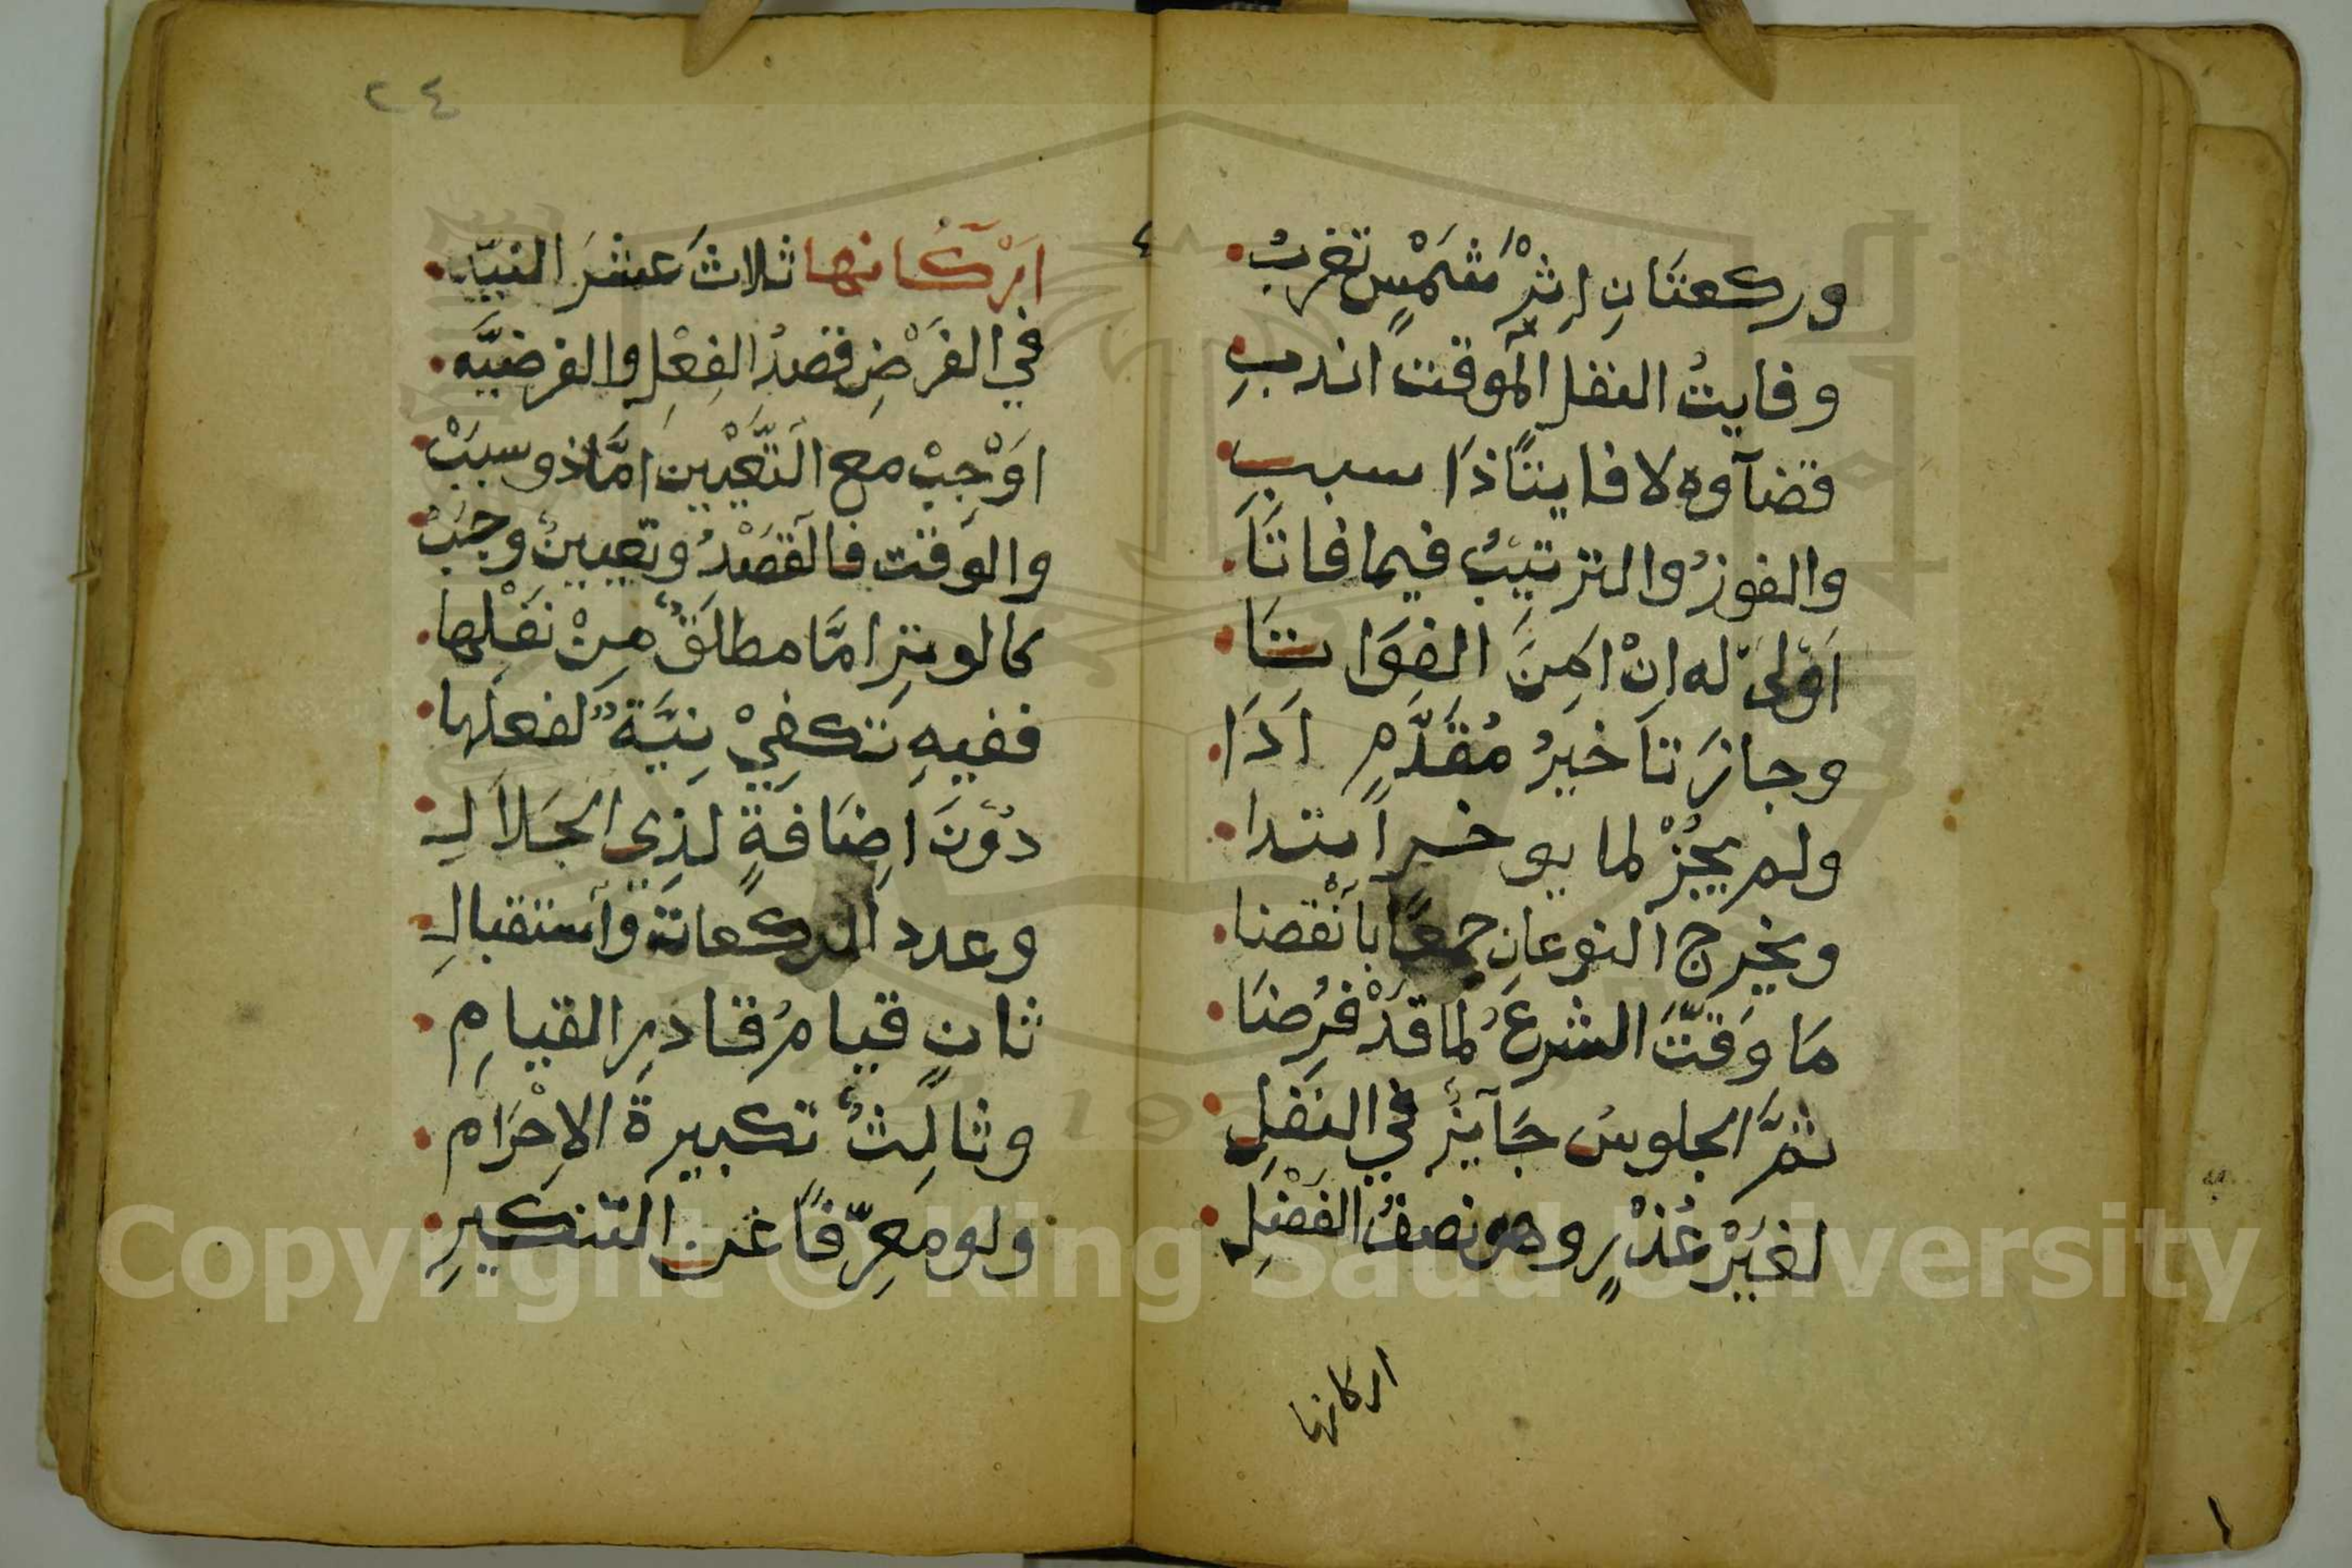 وركعتانِ اِثْرَ شَمْسٍ تغربُ
وفايتُ النفل المَوقت اندبِ
قضآوه لا فايتًا ذا سببِ
والفورُ والترتيبُ فيما فاتَا
اَوْلى له اِنْ امِنَ الفَوَاتَا
وجازَ تاَخيرُ مُقَدَّمٍ اَدَا
ولم يجُزْ لما يوخر اَبتدا
ويخرج النوعانِ جمعًا باَنْقضا
مَا وَقَّتَ الشرعُ لما قَدْ فُرِضَا
ثمَّ الجلوسُ جَآيزٌ في النَفلِ
لغيْرِ عُذْرٍ وهو نصفُ الفَضْلِ
اركانها
٢٤
اَرْكَانها ثلاثَ عشرَ النيّه
في الفَرْضِ قصدُ الفِعْلِ والفرضيَّه
اوْجِبْ مع التَّعْيينِ امَّا ذو سبَبْ
والوَقت فالقَصْدُ وتعيينٌ وجَبْ
كالوترِ امَّا مطلَقٌ مِنْ نفْلِها
ففيهِ تكفِيْ نِيَّةٌ لفعلها
دوْنَ اضَافةٍ لذي الجَلاَلِ
وعدد الركعات وأستقبالِ
ثانٍ قيامُ قادرِ القيامِ
وثالِثٌ تكبيرةُ الاِحْرَامِ
ولو مَعرِّفًا عن التنكيرِ
Copyright © King Saud University